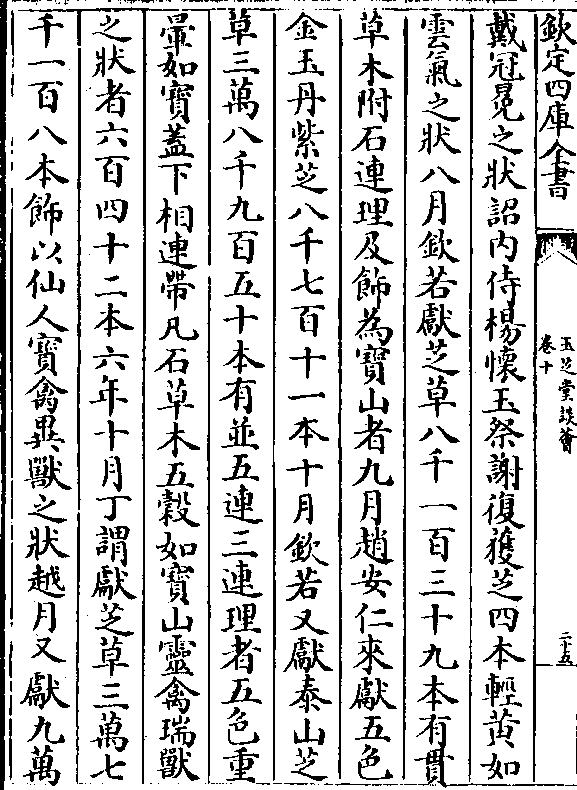 欽定四庫全書
玉芝堂談薈
卷十
二十五
戴冠冕之狀詔内侍楊懷玉祭謝復獲芝四本輕黃如
雲氣之狀八月欽若獻芝草八千一百三十九本有貫
草木附石連理及飾為寶山者九月趙安仁來獻五色
金玉丹紫芝八千七百十一本十月欽若又獻泰山芝
草三萬八千九百五十本有並五連三連理者五色重
暈如寶蓋下相連帶凡石草木五穀如寶山靈禽瑞獸
之狀者六百四十二本六年十月丁謂獻芝草三萬七
千一百八本飾以仙人寶禽異獸之狀越月又獻九萬